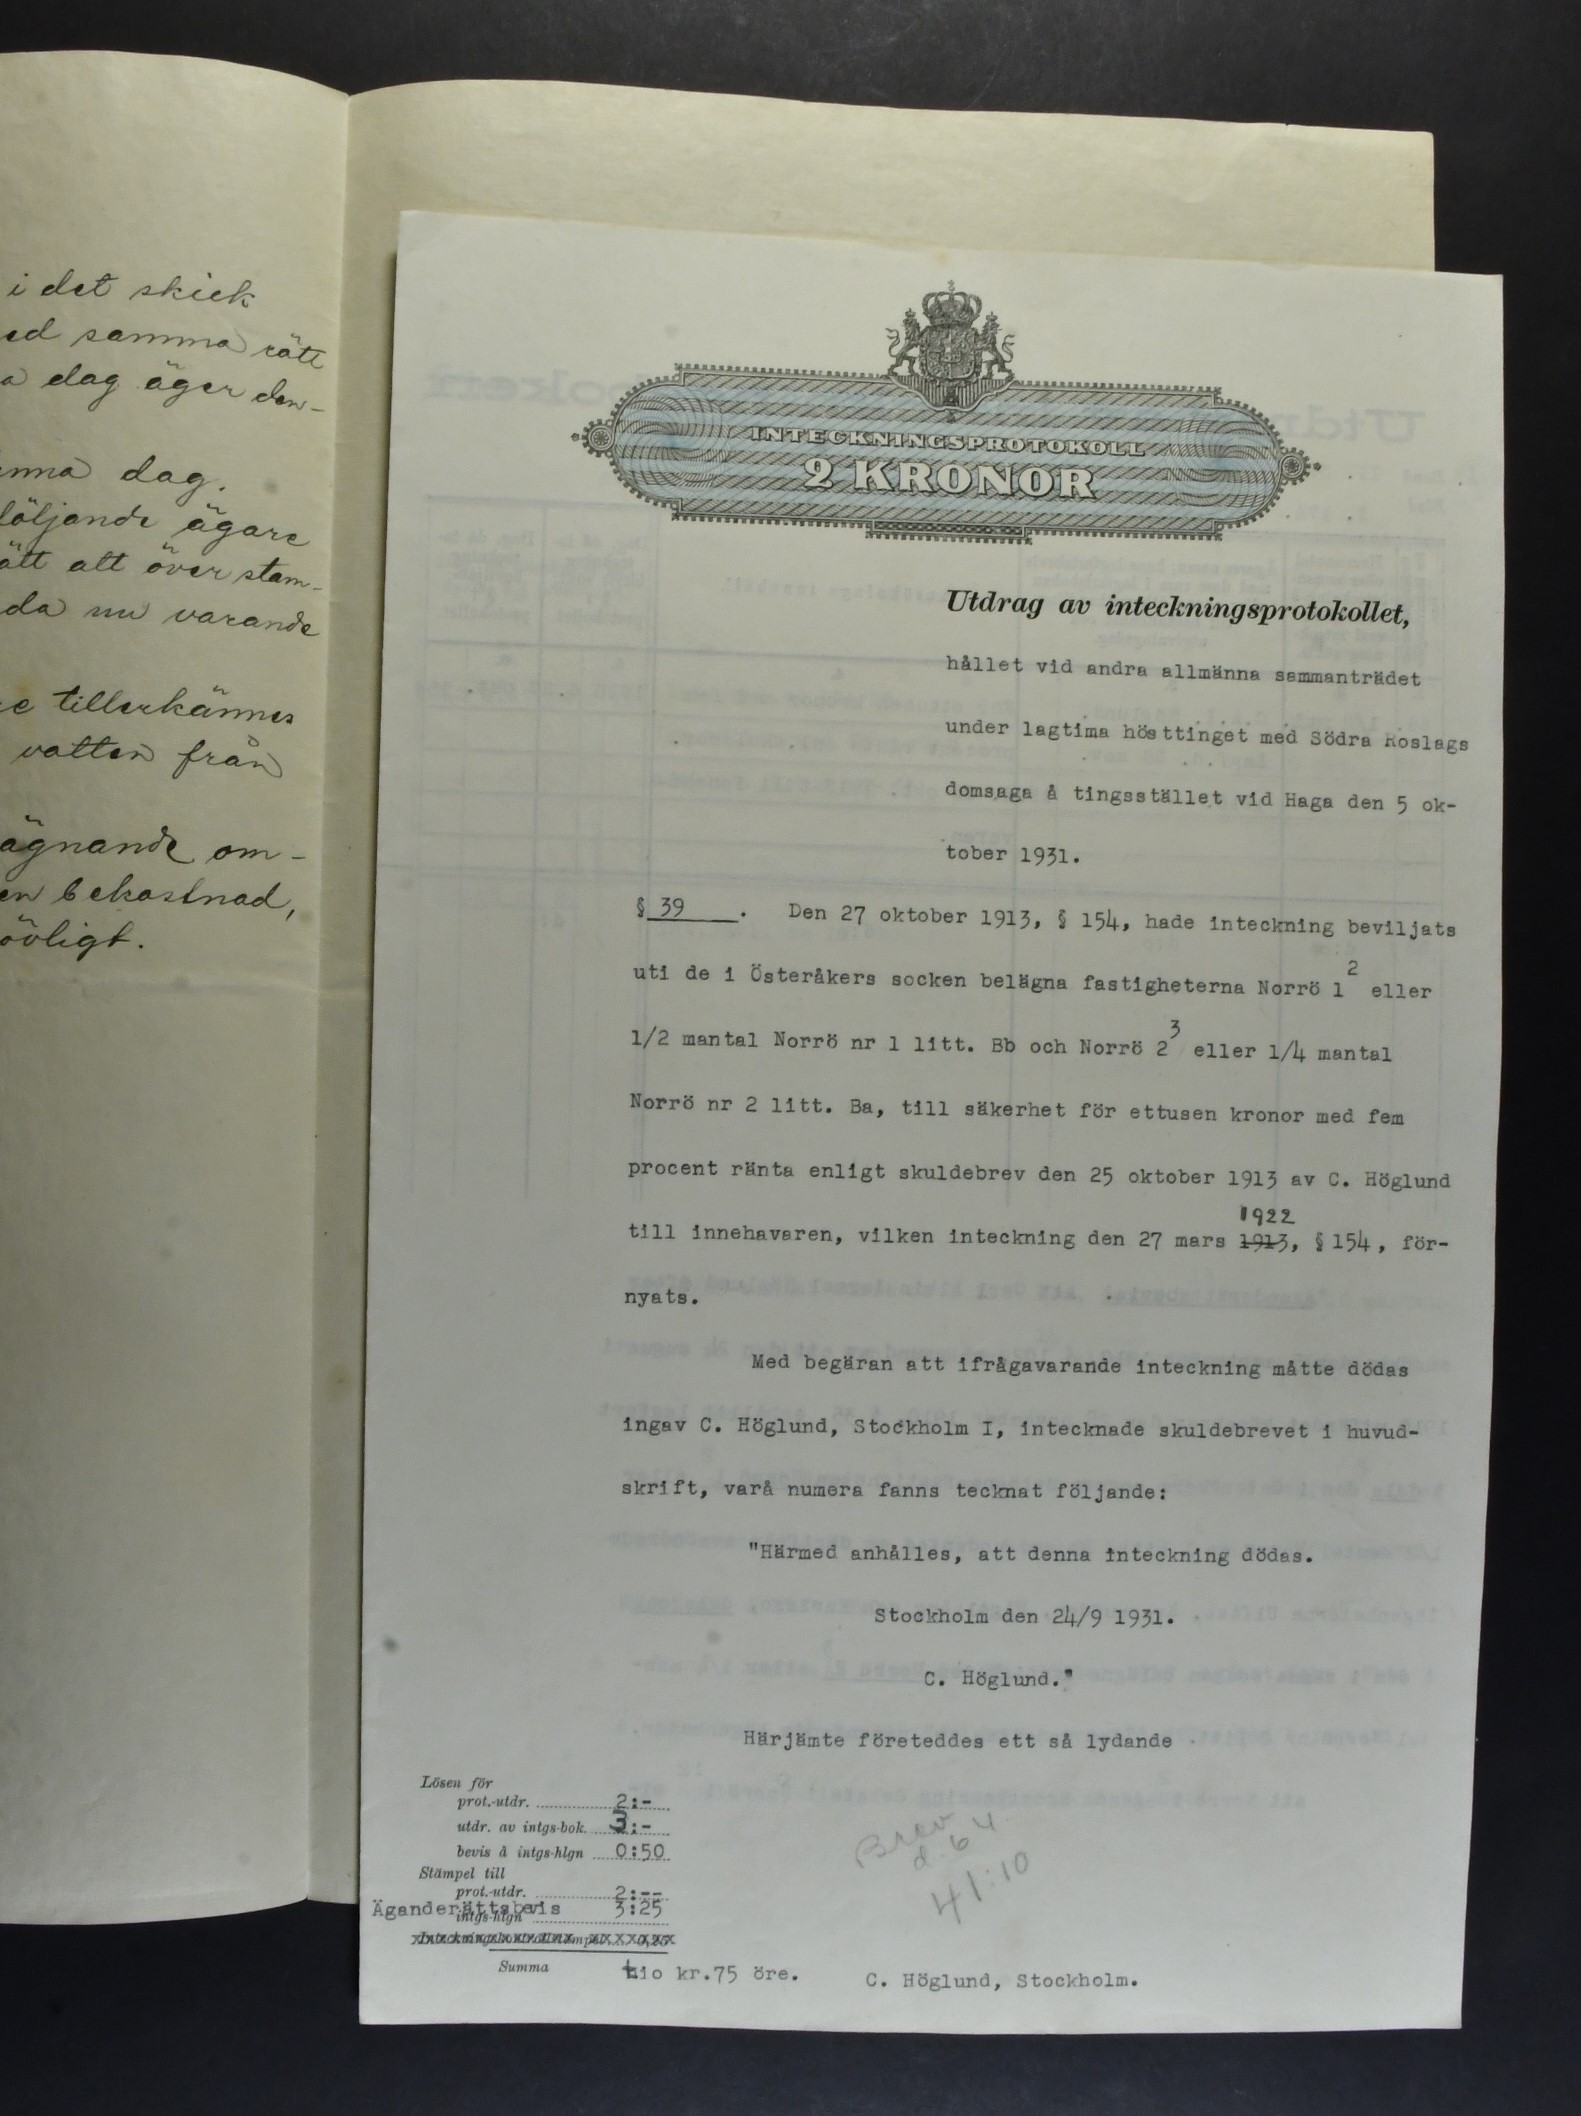 i det skick
ed samma rätt
a dag äger den-
nna dag.
följande ägare
ätt att över stam-
da nu varande
re tillerkännes
vatten från
ägnande om-
en bekostnad,
övligt.
INTECKNINGSPROTOKOLL
2 KRONOR
Utdrag av inteckningsprotokollet,
hållet vid andra allmänna sammanträdet
under lagtima hösttinget med Södra Roslags
domsaga å tingsstället vid Haga den 5 ok-
tober 1931.
§ 39. Den 27 oktober 1913, § 154, hade inteckning beviljats
uti de i Österåkers socken belägna fastigheterna Norrö 1² eller
1/2 mantal Norrö nr 1 litt. Bb och Norrö 2³ eller 1/4 mantal
Norrö nr 2 litt. Ba, till säkerhet för ettusen kronor med fem
procent ränta enligt skuldebrev den 25 oktober 1913 av C. Höglund
1922
till innehavaren, vilken inteckning den 27 mars 1913, § 154, för-
nyats.
Med begäran att ifrågavarande inteckning måtte dödas
ingav C. Höglund, Stockholm I, intecknade skuldebrevet i huvud-
skrift, varå numera fanns tecknat följande:
"Härmed anhålles, att denna inteckning dödas.
Stockholm den 24/9 1931.
C. Höglund."
Härjämte företeddes ett så lydande
Lösen för
prot.-utdr. 2:-
utdr. av intgs-bok. 3:-
bevis å intgs-hlgn 0:50
Stämpel till
prot.-utdr. 2:--
Äganderättsbevis 3:25
intgs-hlgn
Summa tio kr.75 öre.
C. Höglund, Stockholm.
Brev
d. 6 4
41:10